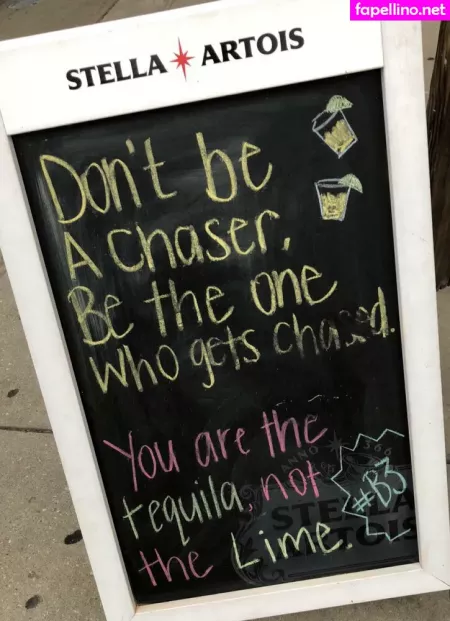 fapellino.net
STELLA ARTOIS
Don't be
A Chaser,
Be the one
who gets chased.
You are the
tequila, not
the Lime.
#B3
ANNO
STELLA
ARTOIS